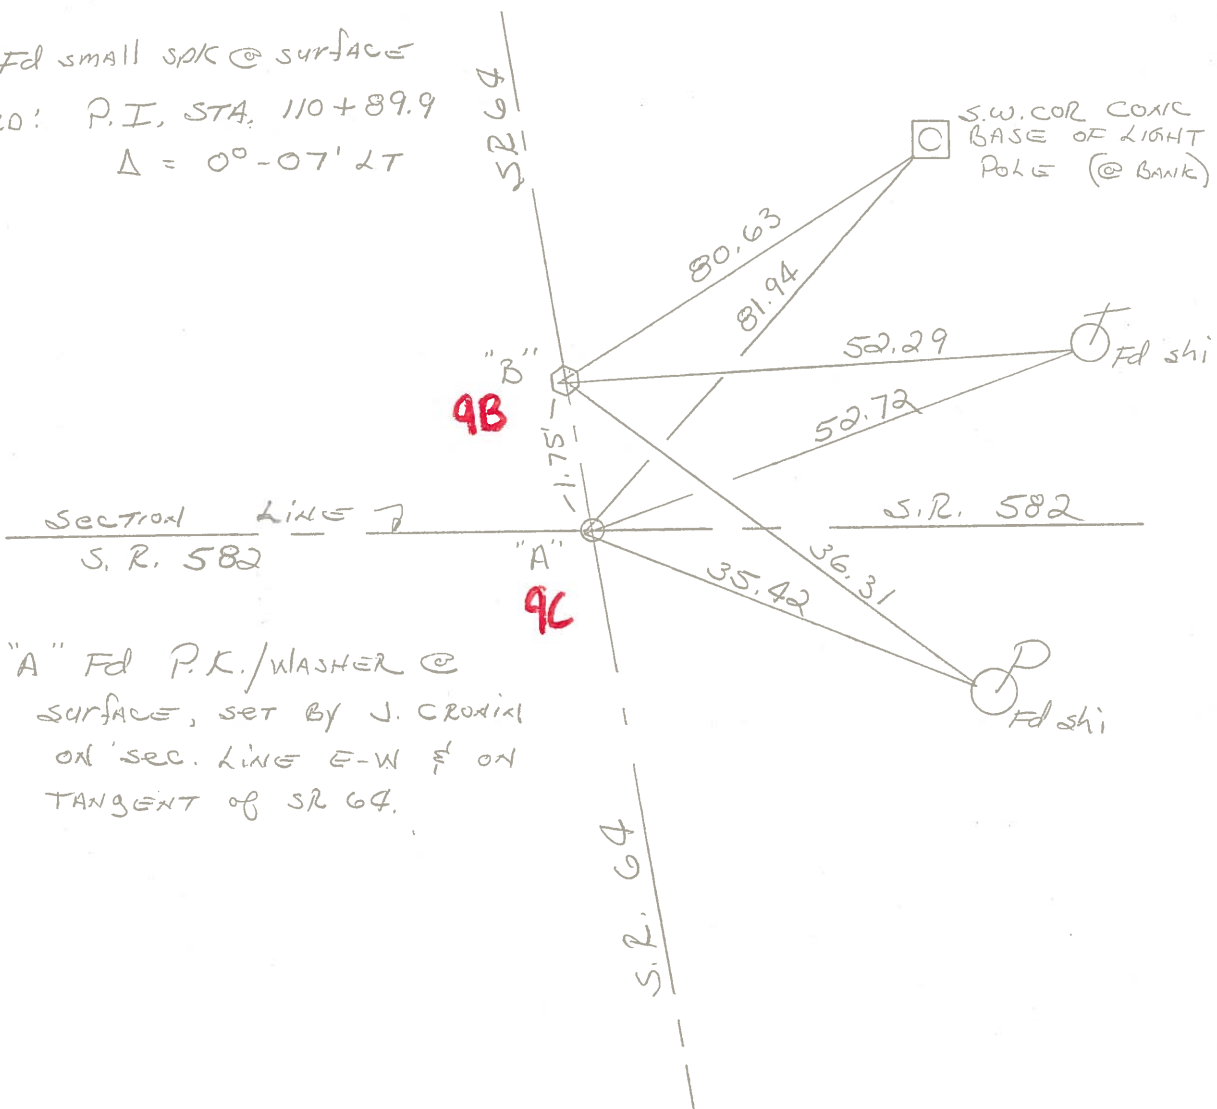 Fd small spk @ surface
P.I. STA. 110+89.9
Δ = 0°-07' LT
SR 64
S.W. COR CONC
BASE OF LIGHT
POLE (@ BANK)
80.63
81.94
"B"
9B
52.29
T
Fd shi
52.72
1.75'
SECTION LINE
S.R. 582
S.R. 582
"A"
9C
36.31
35.42
P
Fd shi
"A" Fd P.K./WASHER @
surface, set By J. CRONIN
ON sec. LINE E-W & ON
TANGENT of SR 64.
S.R. 64